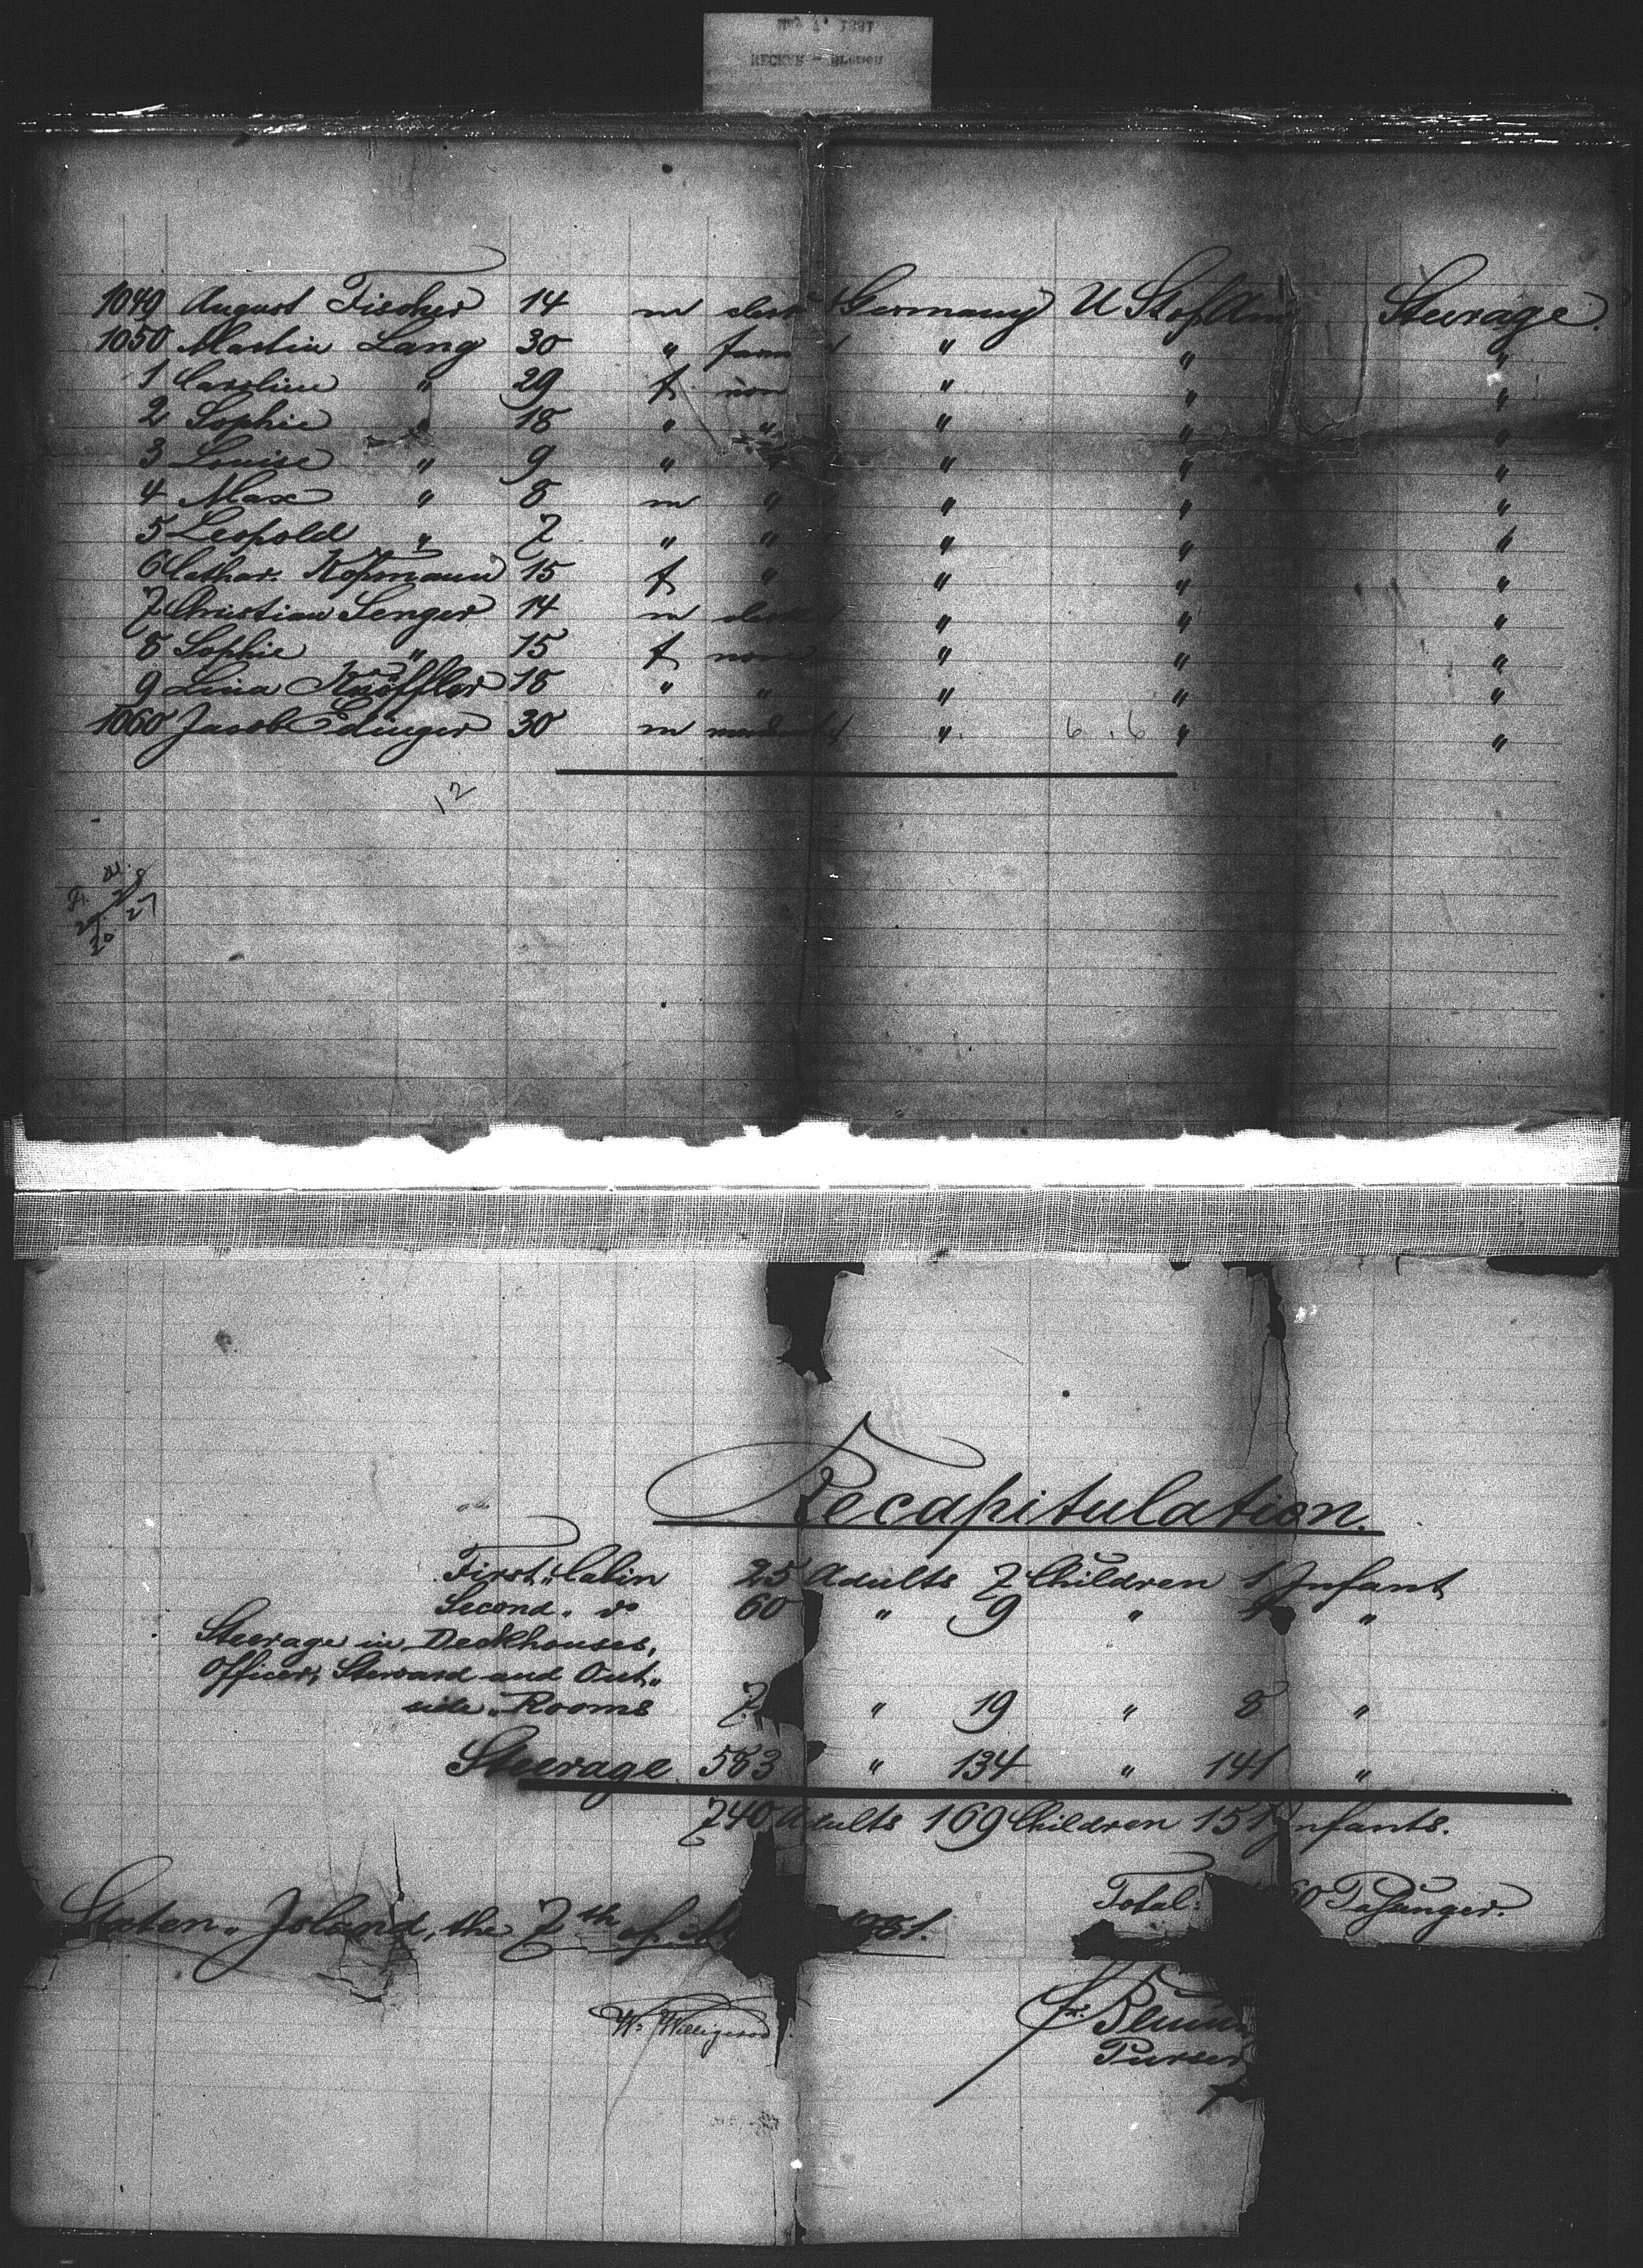 May 7, 1881
NECKAR - Bremen
1049 August Fischer 14 m clerk Germany U St of Am Steerage.
1050 Martin Lang 30 " farm " " "
1 Caroline " 29 f non " " "
2 Sophie " 18 " " " " "
3 Louise " 9 " " " " "
4 Max " 8 m " " " "
5 Leopold " 7 " " " " "
6 Cathar. Kopmann 15 f " " " "
7 Christian Senger 14 m clerk " " "
8 Sophie " 15 f none " " "
9 Lina Knöffler 18 " " " " "
1060 Jacob Edinger 30 m " 6 . 6 " "
12
Recapitulation.
First " Cabin 25 Adults 7 Children 1 Infant
Second " do 60 " 9 " 1 "
Steerage in Deckhouses,
Officer, Steward and Out "
side " Rooms 7 " 19 " 8 "
Steerage 583 " 134 " 141 "
740 Adults 169 Children 151 Infants.
Total: 60 Passenger.
Staten " Island, the 7th of 1881.
W. Willigerod
Purser